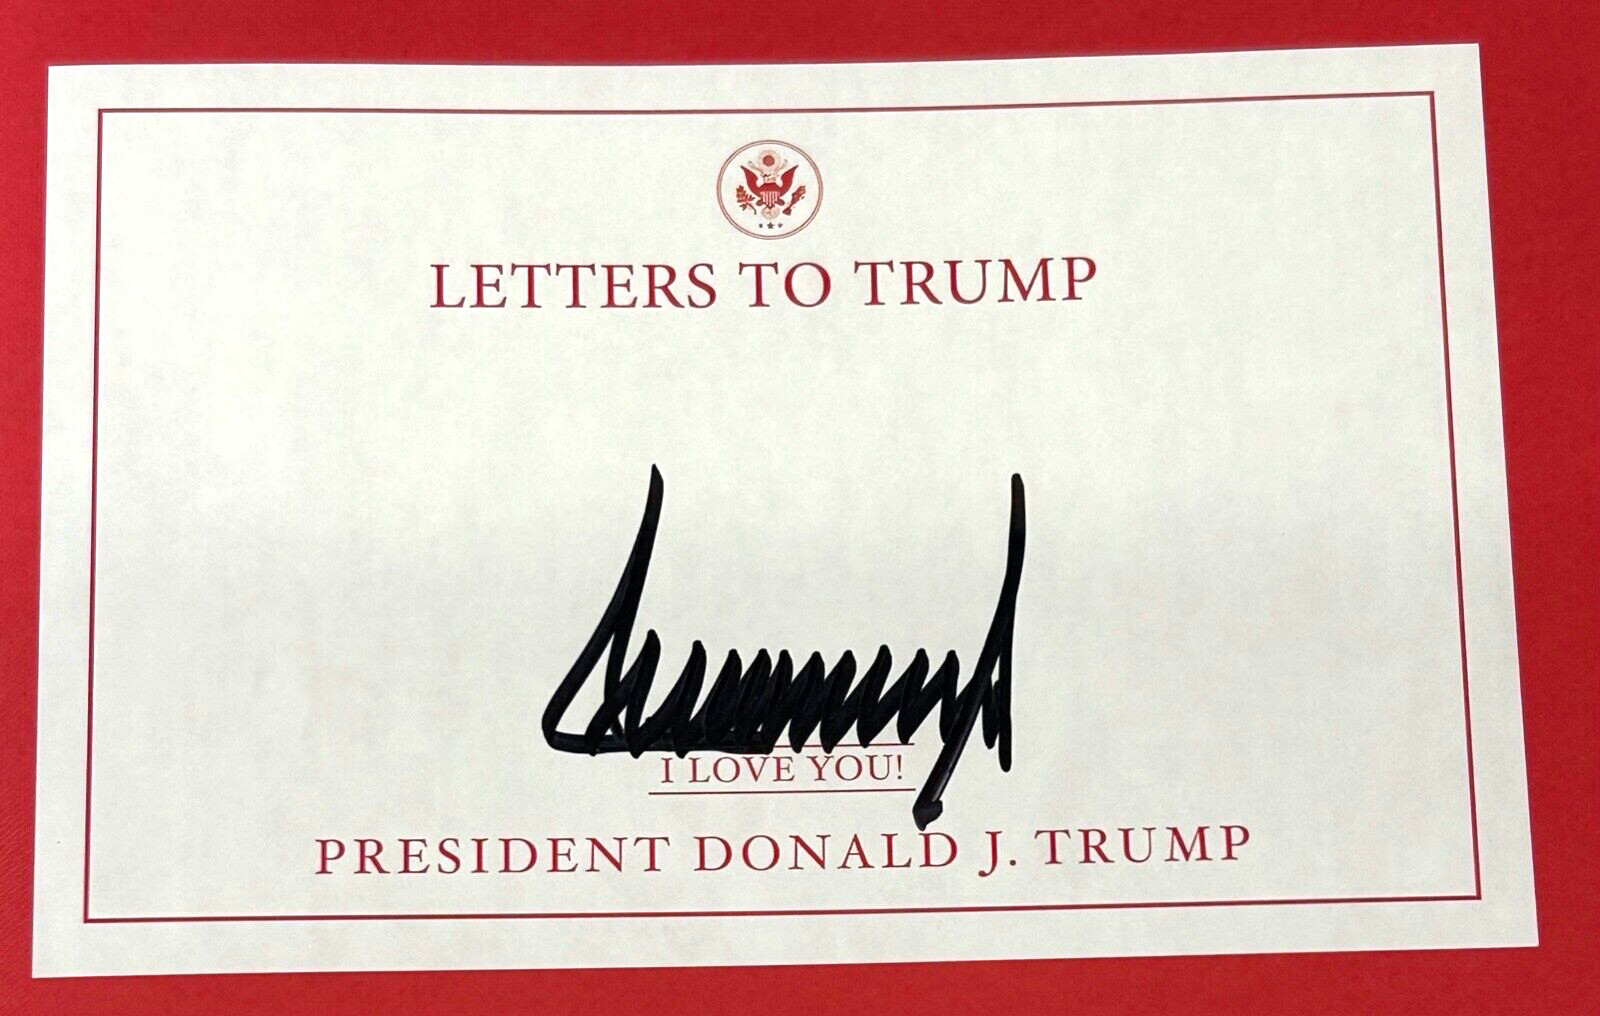 LETTERS TO TRUMP
I LOVE YOU!
PRESIDENT DONALD J. TRUMP